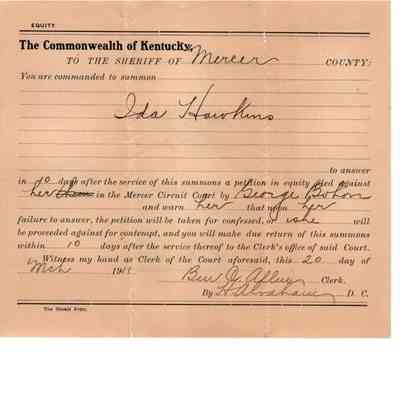 EQUITY
The Commonwealth of Kentucky,
TO THE SHERIFF OF Mercer COUNTY:
You are commanded to summon
Ida Hawkins
to answer
in 10 days after the service of this summons a petition in equity filed against
her them in the Mercer Circuit Court by George Bohon
and warn her that upon her
failure to answer, the petition will be taken for confessed, or she will
be proceeded against for contempt, and you will make due return of this summons
within 10 days after the service thereof to the Clerk's office of said Court.
Witness my hand as Clerk of the Court aforesaid, this 20 day of
Mch 191
Ben Clerk.
By Abraham D. C.